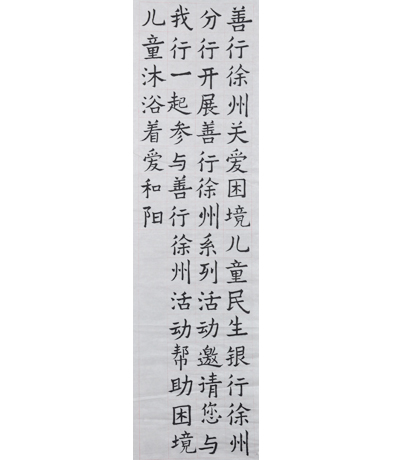 善行徐州关爱困境儿童民生银行徐州
分行开展善行徐州系列活动邀请您与
我行一起参与善行徐州活动帮助困境
儿童沐浴着爱和阳